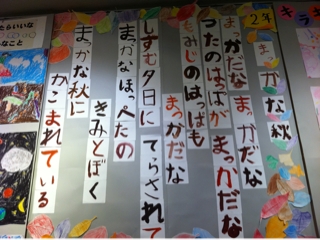 2年
まっかな秋
まっかだな まっかだな
つたのはっぱが まっかだな
もみじのはっぱも
まっかだな
しずむ夕日に てらされて
まっかなほっぺたの
きみとぼく
まっかな秋に
かこまれている
キラキ
たらいいな
なこと